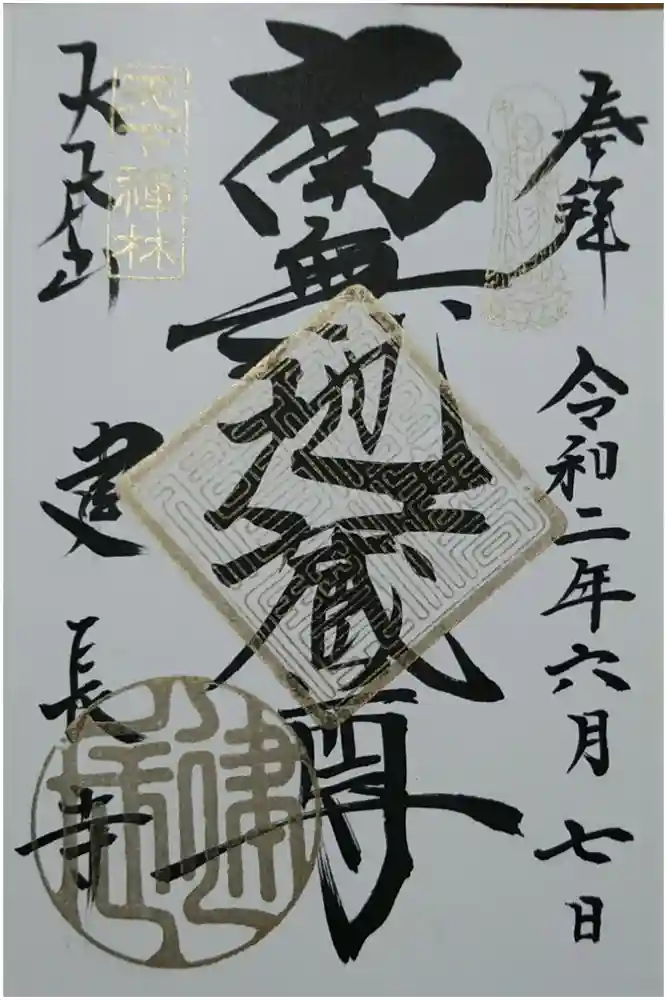 奉拝
令和二年六月七日
南無地蔵尊
天下禅林
天下山
建長寺